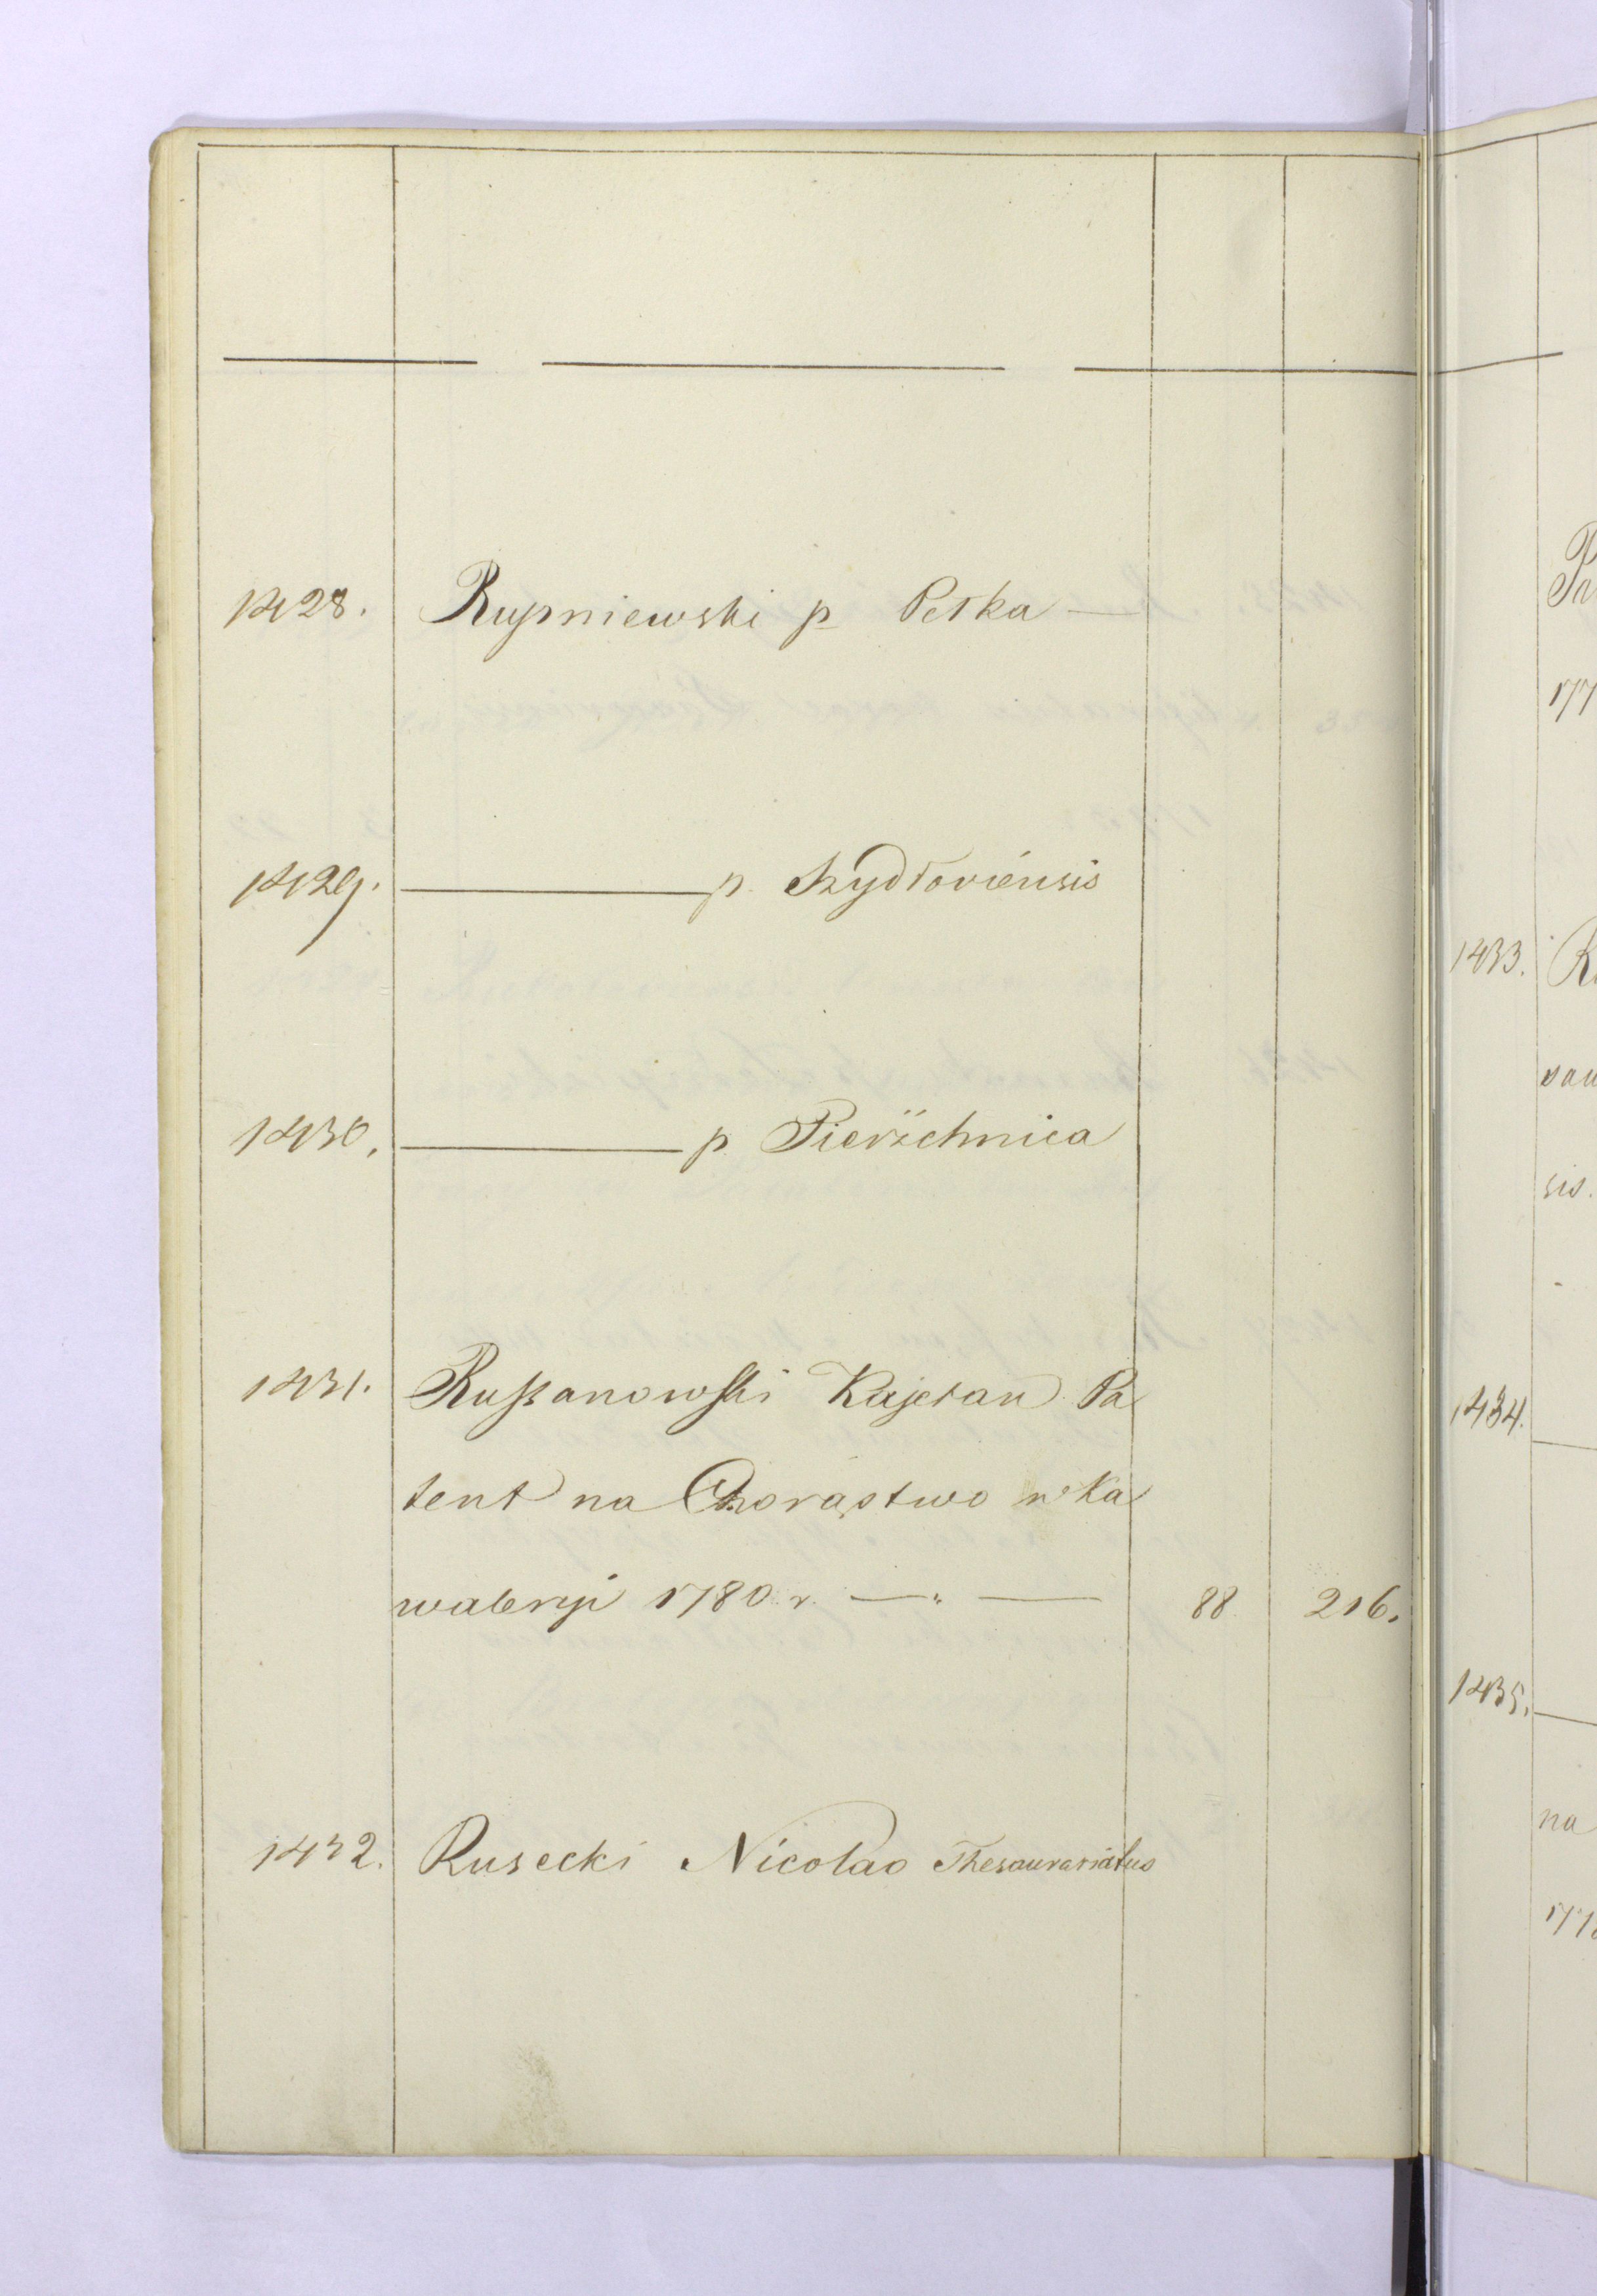 1428. Rupniewski p Petka —
1429. ——— p. Szydłoviensis
1430. ——— p. Pierżchnica
1431. Rußanowski Kajetan Pa
tent na Chorąstwo w Ka
waleryi 1780 r. —„— 88 216.
1432. Rusecki Nicolao Thesaurariatus
Pa
177
1433. R
sau
sis.
1434.
1435.
na
177